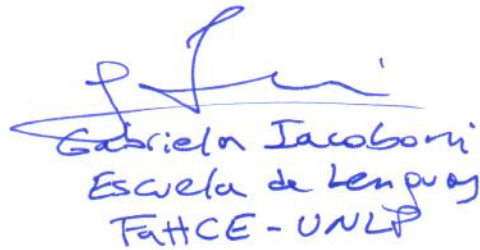 Gabriela Iacoboni
Escuela de Lenguas
FaHCE - UNLP